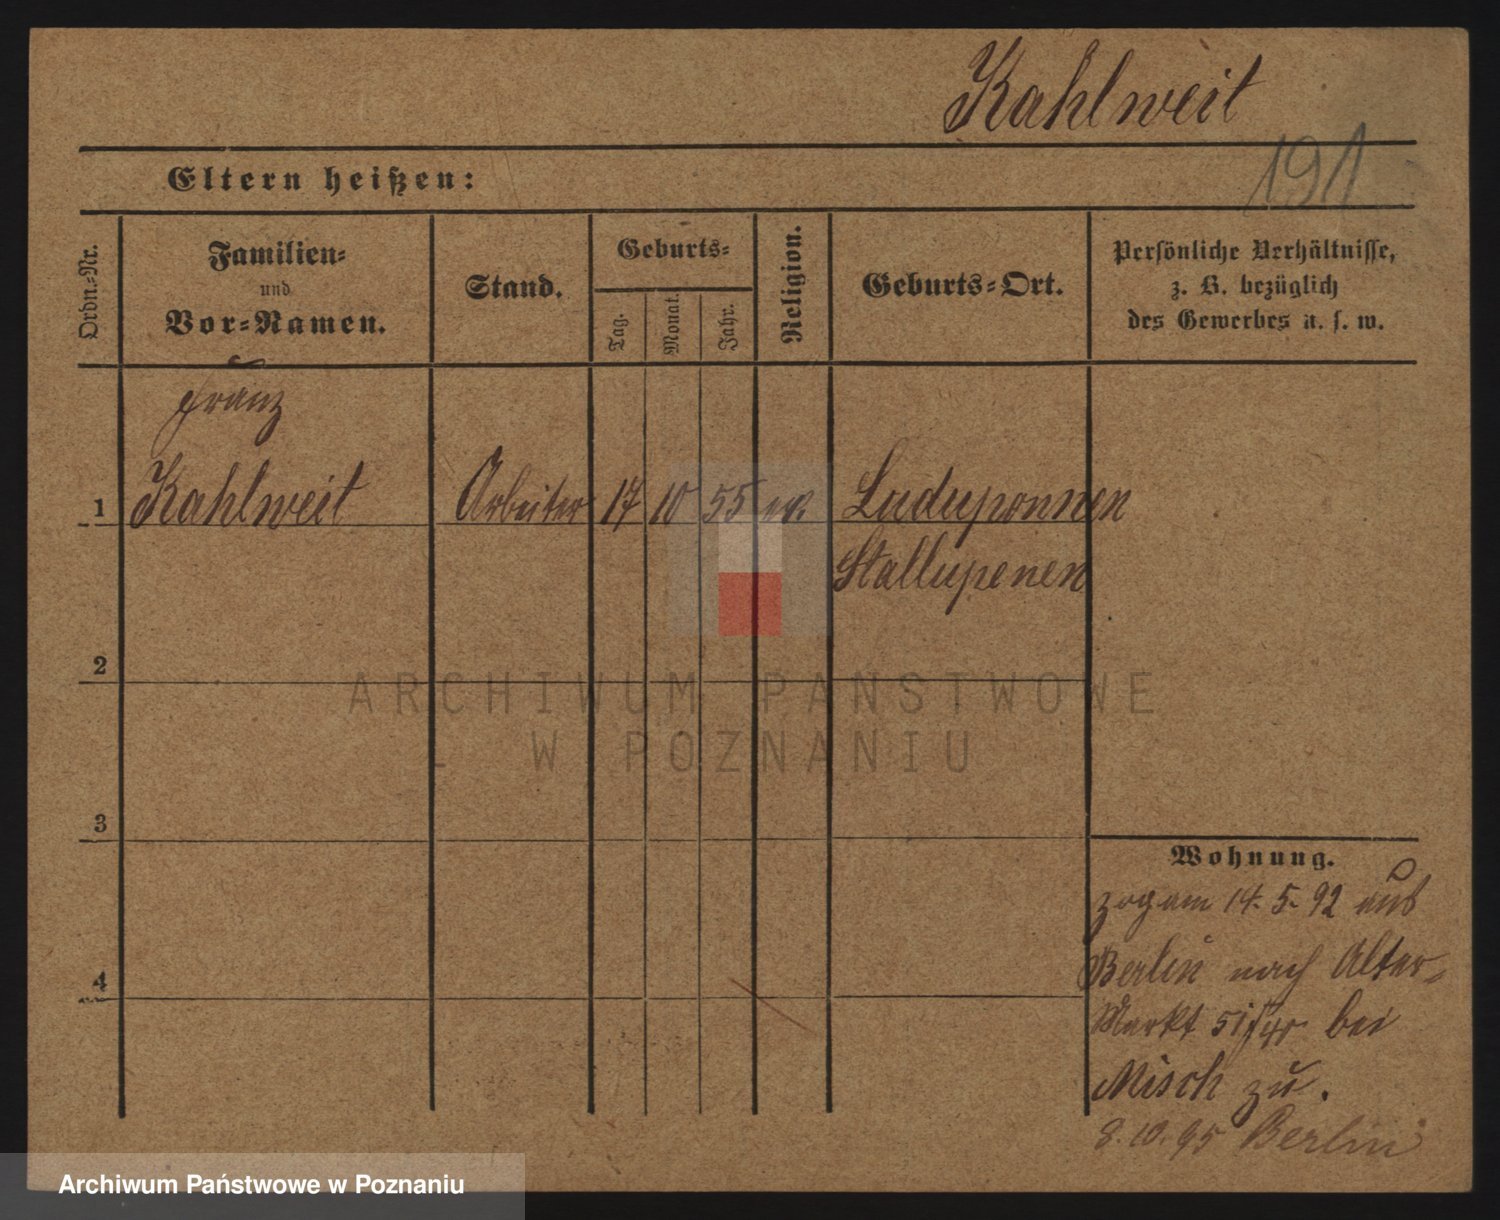 Kahlweit
191
Eltern heißen:
Ordn.-Nr.
Familien-
und
Vor-Namen.
Stand.
Geburts-
Tag.
Monat.
Jahr.
Religion.
Geburts-Ort.
Persönliche Verhältnisse,
z. B. bezüglich
des Gewerbes u. s. w.
Franz
1 Kahlweit Arbeiter 17 10 55 ev. Luduponnen
Stallupenen
2
3
4
Wohnung.
zog am 14. 5. 92 aus
Berlin nach Alter-
Markt 51 bei
Misch zu.
8.10.95 Berlin
ARCHIWUM PAŃSTWOWE
W POZNANIU
Archiwum Państwowe w Poznaniu